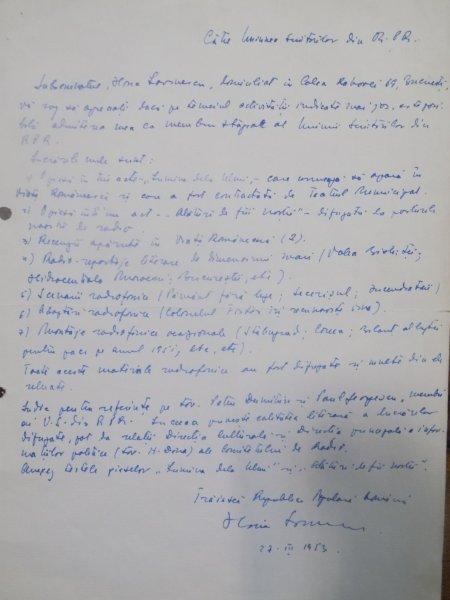 Către Uniunea Scriitorilor din R.P.R.
Subsemnatul, Horia Lovinescu, domiciliat în Calea Rahovei 69, București,
vă rog să apreciați dacă pe temeiul activității indicate mai jos, este posi-
bilă admiterea mea ca membru stagiar al Uniunii Scriitorilor din
R.P.R.
Lucrările mele sunt:
1) O piesă în trei acte „Lumina dela Ulmi" – care urmează să apară în
Viața Românească și care a fost contractată de Teatrul Municipal.
2) O piesă într'un act – „Alături de fiii noștri" – difuzată la posturile
noastre de radio.
3) Recenzii apărute în Viața Românească (2).
4) Radio-reportaje literare de dimensiuni mari (Valea
Hidrocentrala Moroeni; București, etc).
5) Scenarii radiofonice (Pământ fără lege; Secerișul; Incendiatorii)
6) Adaptări radiofonice (Colonelul Foster își
7) Montaje radiofonice ocazionale (Stalingrad; Coreea; Bilanț al luptei
pentru pace pe anul 1951, etc, etc).
Toate aceste materiale radiofonice au fost difuzate și multe din ele
reluate.
Indic pentru referințe pe tov. Petru Dumitriu și Paul Georgescu, membri
ai U.S. din R.P.R. In ceea ce privește calitatea literară a lucrărilor
difuzate, pot da relații Direcția Culturală și Direcția propagandă și infor-
mațiilor politice (tov. H. Dona) ale Comitetului de Radio.
Anexez textele pieselor „Lumina dela Ulmi" și „Alături de fiii noștri".
Trăiască Republica Populară Română
Horia Lovinescu
27. III 1953.